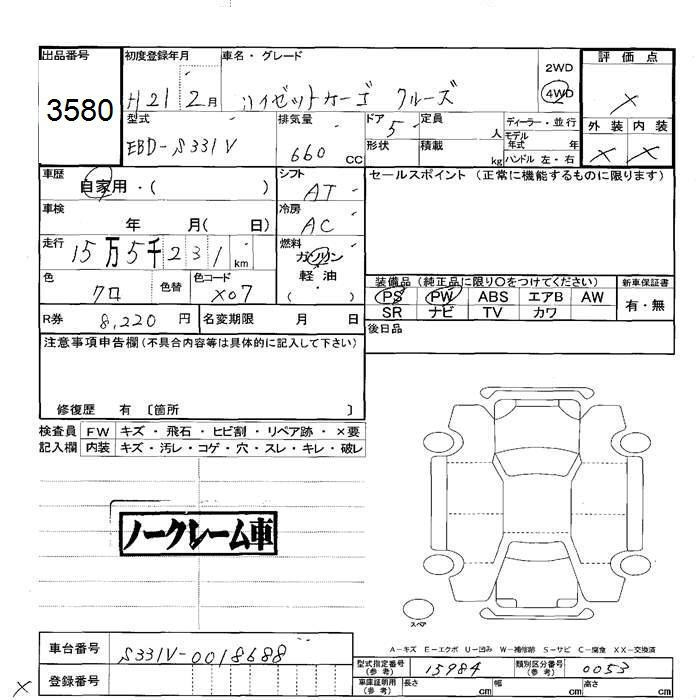 出品番号 初度登録年月 車名・グレード 評価点
3580 H21 2月 ハイゼットカーゴ クルーズ 2WD 4WD ×
型式 排気量 ドア 定員 ディーラー・並行 外装 内装
EBD-S331V 660 CC 5 人 モデル年式 年 × ×
形状 積載 kg ハンドル 左・右
車歴 自家用・( ) シフト AT セールスポイント(正常に機能するものに限ります)
車検 年 月( 日) 冷房 AC
走行 15万5千231km 燃料 ガソリン 軽油 ( ・ )
装備品(純正品に限り○をつけてください) 新車保証書
色 クロ 色替 色コード X07 PS PW ABS エアB AW 有・無
SR ナビ TV カワ
R券 8,220円 名変期限 月 日 後日品
注意事項申告欄(不具合内容等は具体的に記入して下さい)
修復歴 有 〔箇所 〕
検査員 FW キズ・飛石・ヒビ割・リペア跡・×要
記入欄 内装 キズ・汚レ・コゲ・穴・スレ・キレ・破レ
ノークレーム車
スペア
A-キズ E-エクボ U-凹み W-補修跡 S-サビ C-腐食 XX-交換済
車台番号 S331V-0018688
型式指定番号(参考) 15984 類別区分番号(参考) 0053
× 登録番号 車庫証明用(参考) 長さ cm 幅 cm 高さ cm